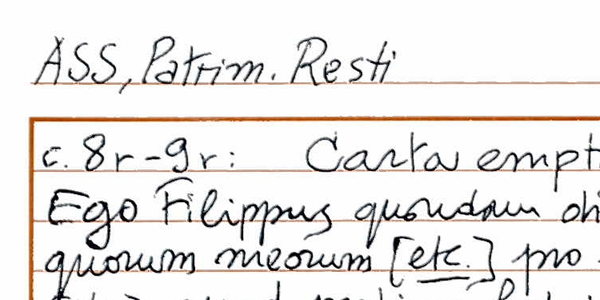 ASS, Patrim. Resti
c. 8r-9r: Carta empt
Ego Filippus quondam
quorum meorum [etc.] pro